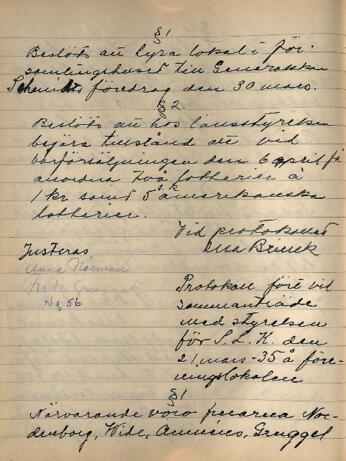 §1
Beslöts att hyra lokal i för-
samlingshuset till Generalskan
föredrag den 30 mars.
§2.
Beslöts att hos länsstyrelsen
begära tillstånd att vid
vårförsäljningen den 6 april få
anordna två lotterier à
1 kr samt 5 amerikanska
lotterier.
Vid protokollet
Elsa
Justeras
Anna Norman
No 56
Protokoll fört vid
sammanträde
med styrelsen
för S.L.K. den
21 mars -35 å före-
ningslokalen
§1
Närvarande voro fruarna Nor-
denborg, Wide, Gruggel